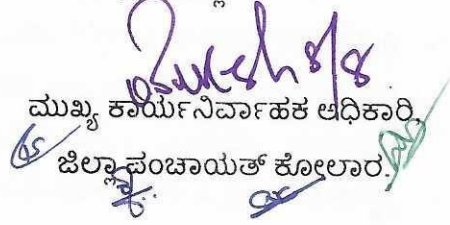 8/8
ಮುಖ್ಯ ಕಾರ್ಯನಿರ್ವಾಹಕ ಅಧಿಕಾರಿ,
ಜಿಲ್ಲಾ ಪಂಚಾಯತ್ ಕೋಲಾರ.